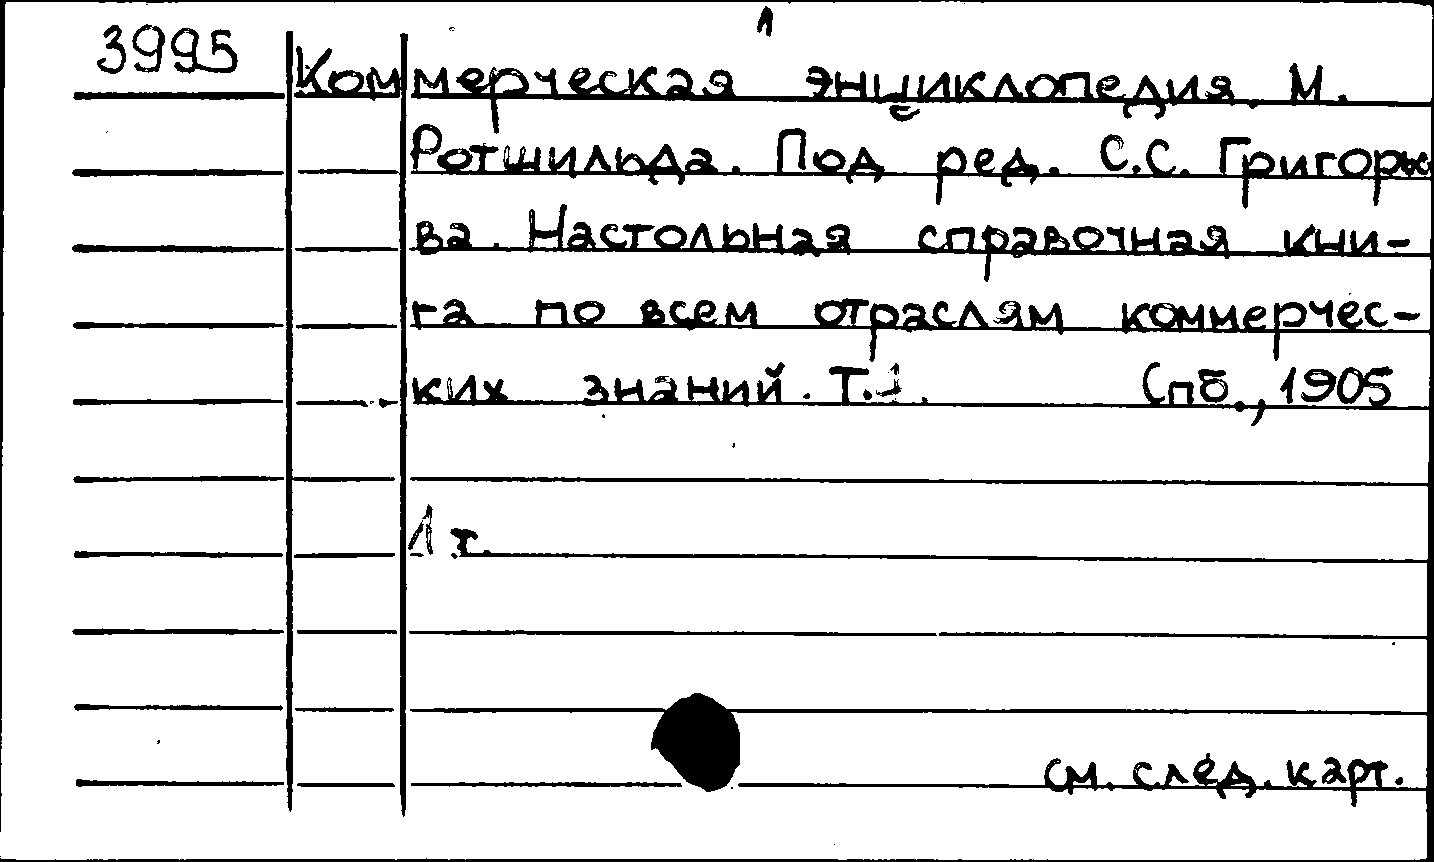 1
3995 Коммерческая энциклопедия М.
Ротшильда. Под ред. С.С. Григорье
ва. Настольная справочная кни-
га по всем отраслям коммерчес-
ких знаний. Т.1. Спб., 1905
1 т.
см. след. карт.